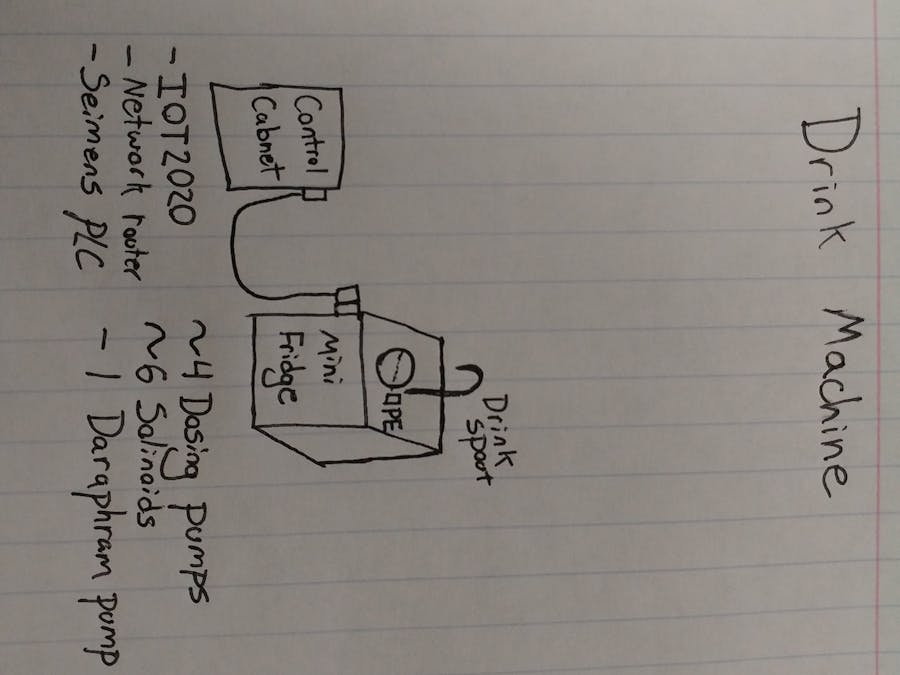 Drink Machine
Drink
Spout
OPE
Control
Cabnet
Mini
Fridge
- IOT2020
- Network router
- Seimens PLC
~4 Dosing pumps
~6 Salinoids
- 1 Daraphram pump